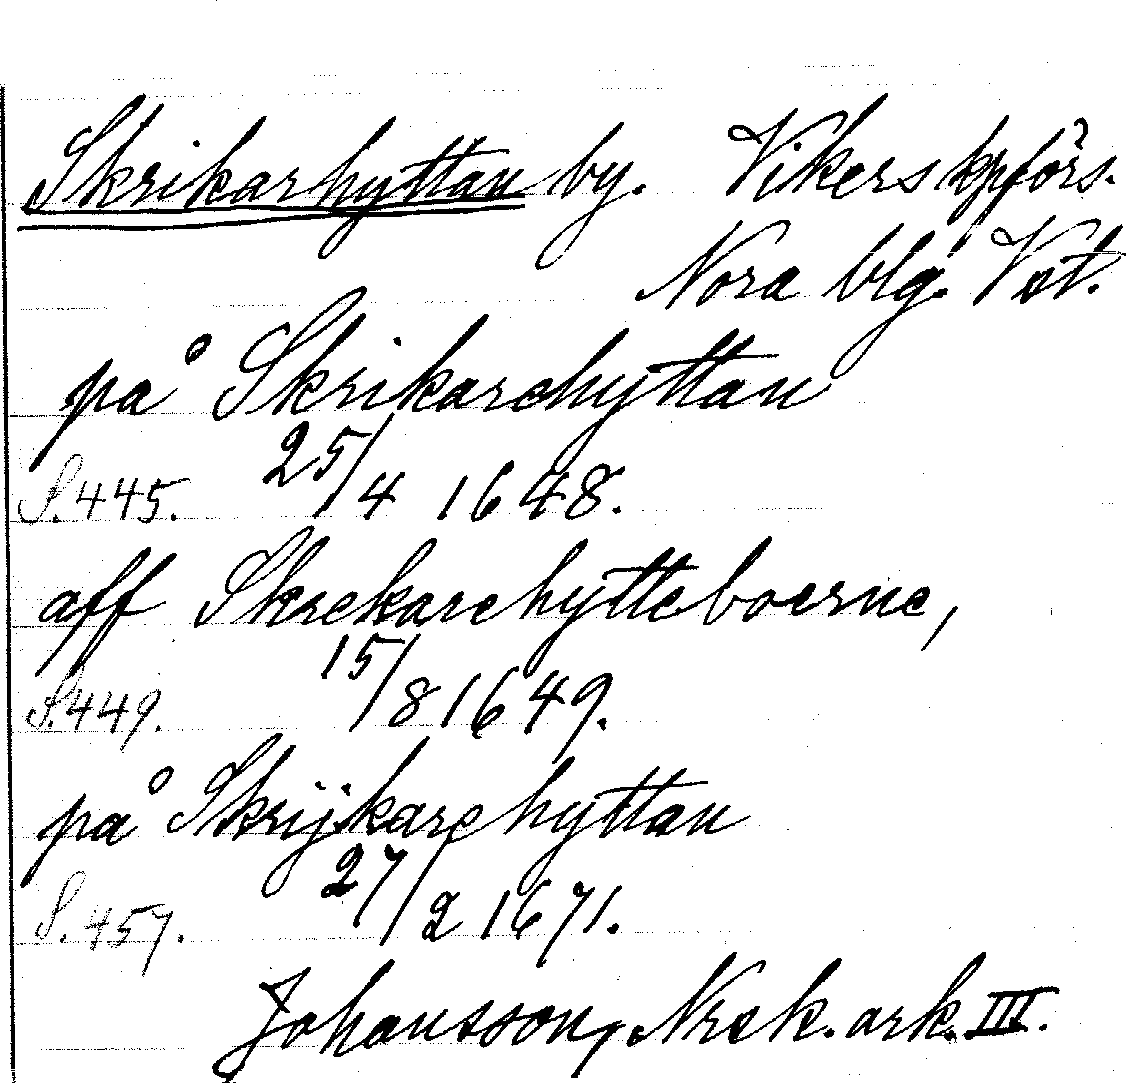 Skrikarhyttan by. Vikers kpförs.
Nora blg. Vst.
på Skrikarehyttan
S. 445. 25/4 1648.
aff Skrekarehytteboerne,
S. 449. 15/8 1649.
på Skrijkarehyttan
S. 457. 27/2 1671.
Johansson, Nrsk. ark. III.